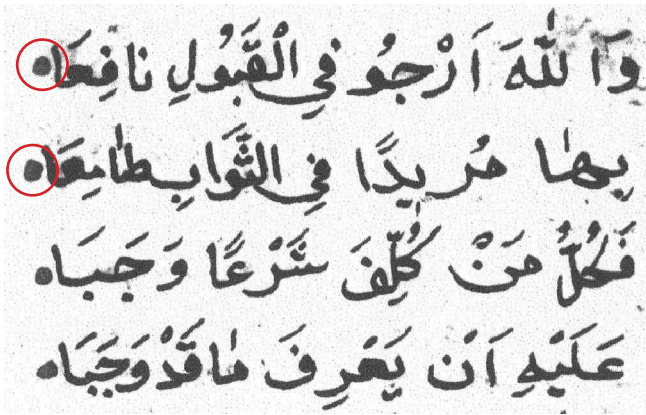 وَاَللّٰهَ اَرْجُو فِي الْقَبُولِ نَافِعَا۝
بِهَا مُرِيدًا فِي الثَّوَابِ طَامِعَا۝
فَكُلُّ مَنْ كُلِّفَ شَرْعًا وَجَبَا۝
عَلَيْهِ اَنْ يَعْرِفَ مَا قَدْ وَجَبَا۝